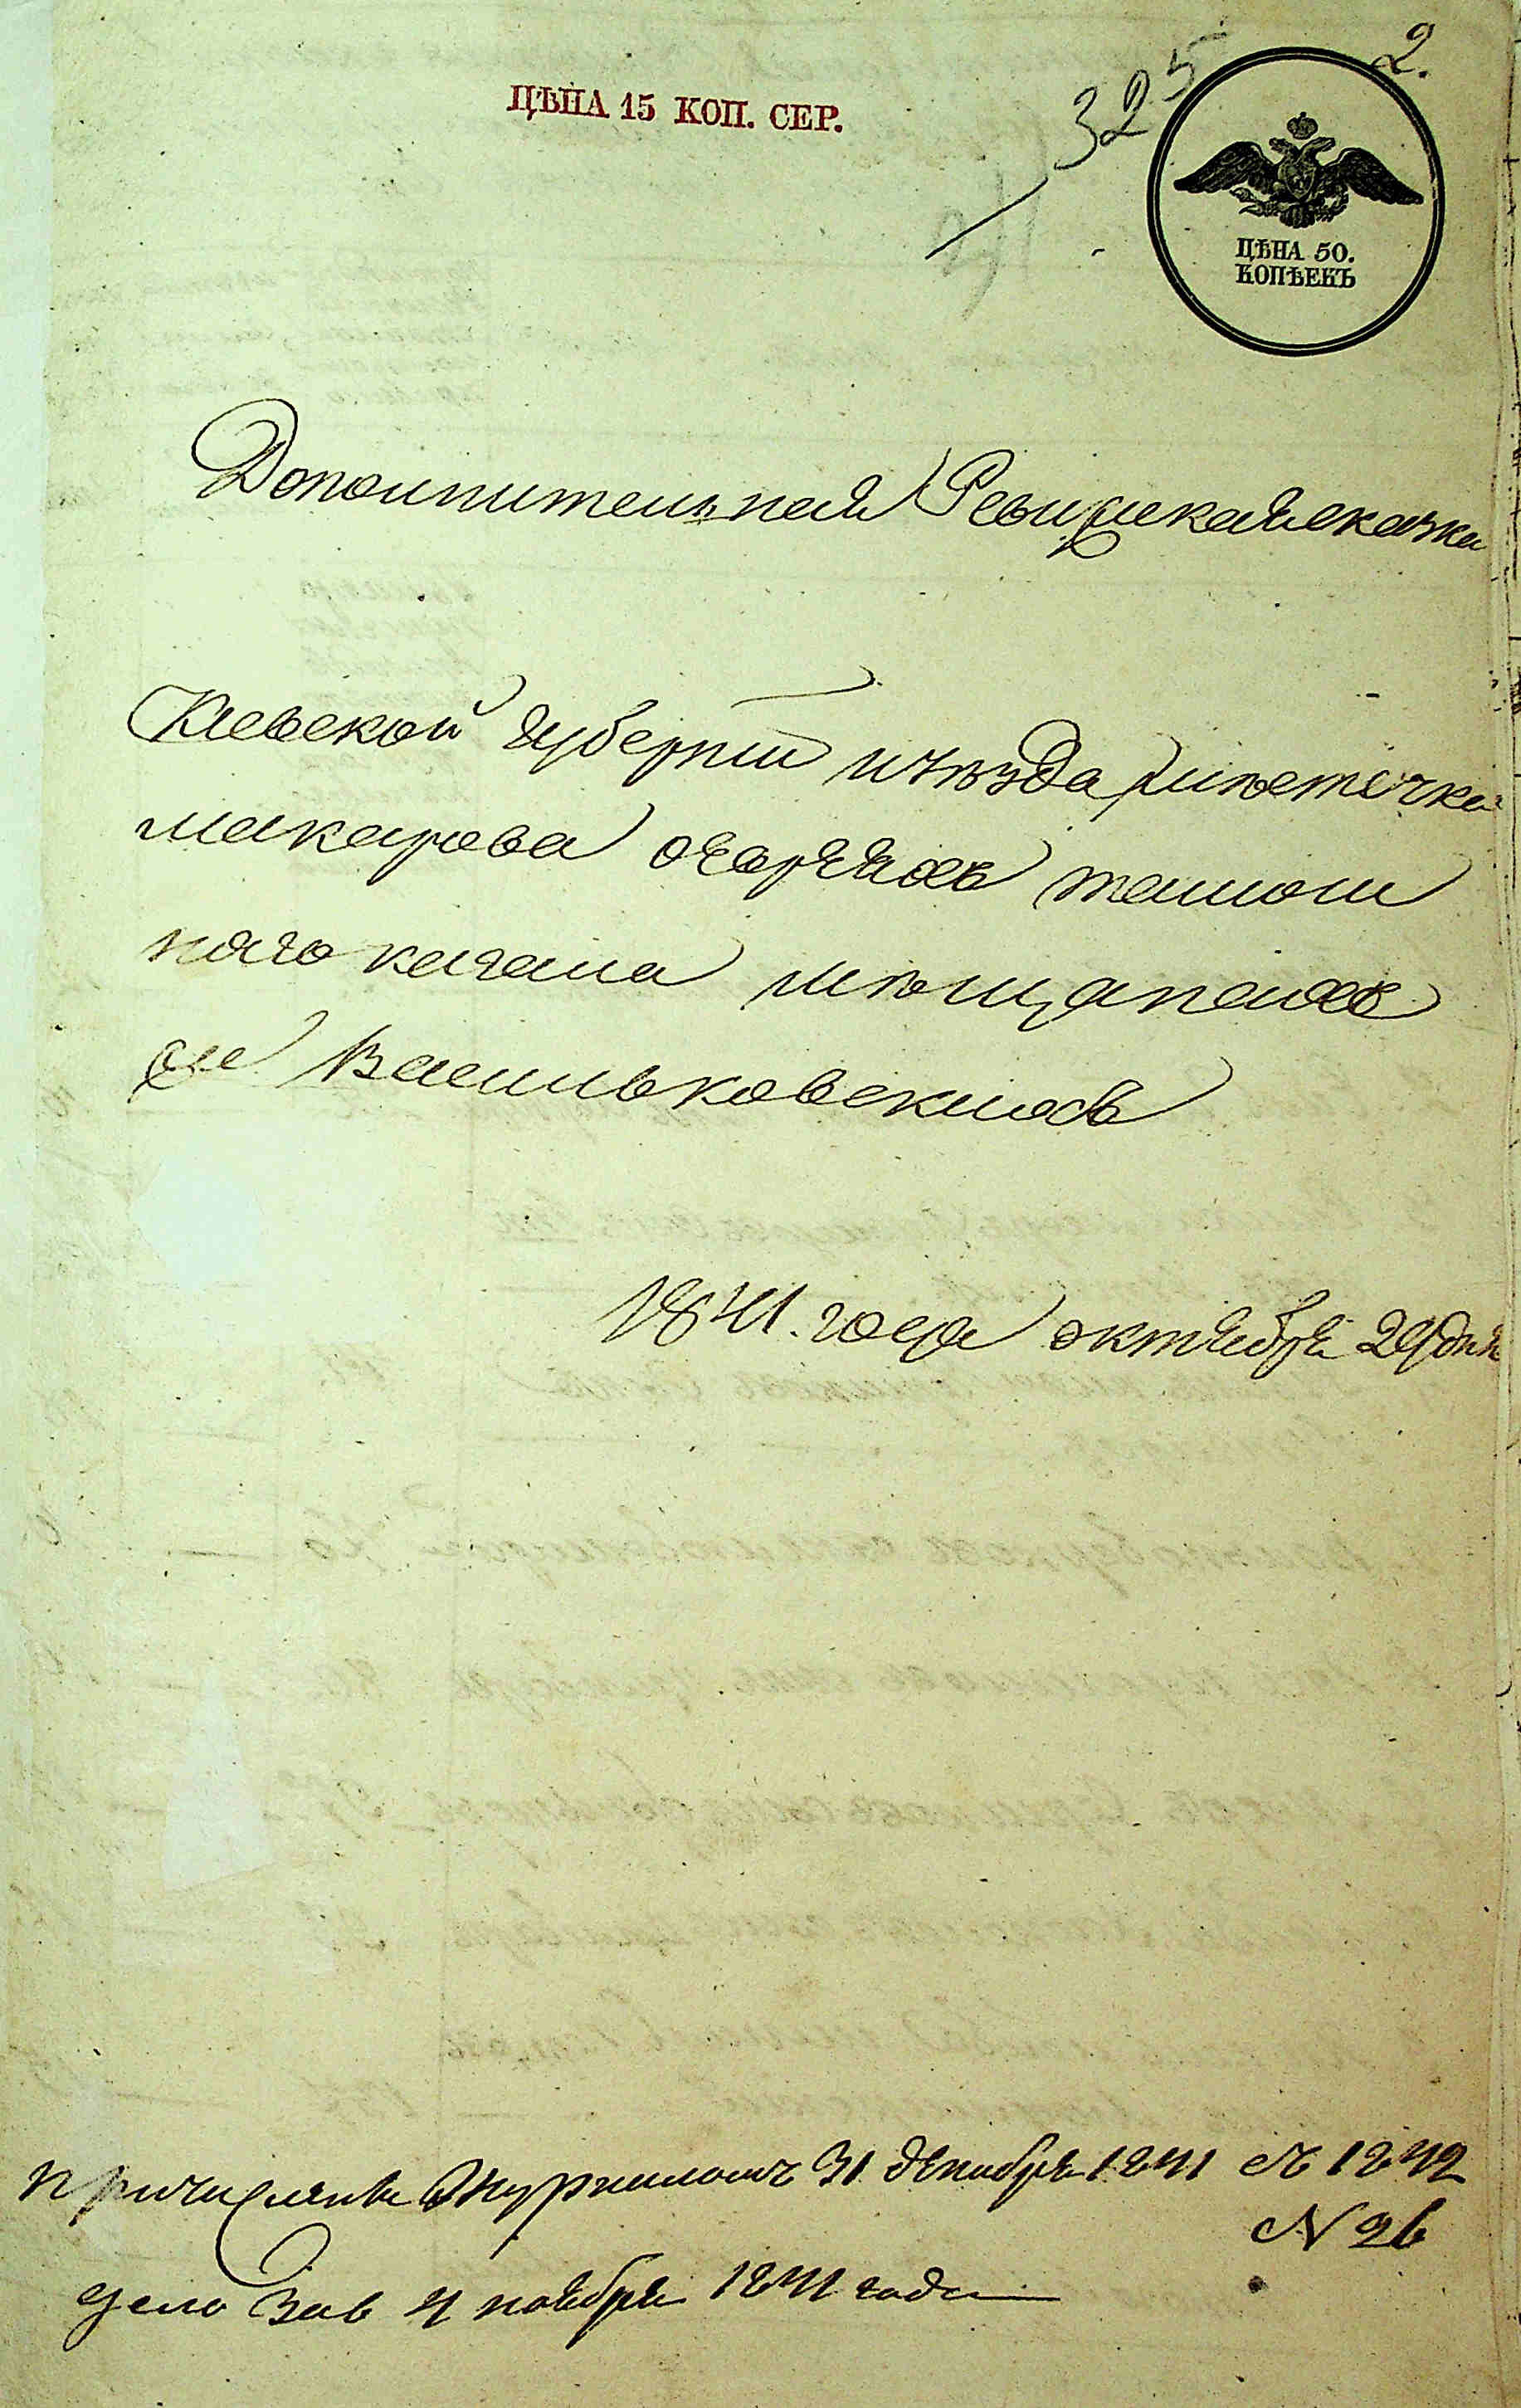 2.
325
ЦѢНА 15 КОП. СЕР.
ЦѢНА 50.
КОПѢЕКЪ
Дополнительная Ревизская сказка
Киевской Губернии и уѣзда мѣстечка
Макарова о евреяхъ тамош
няго кагала мѣщанахъ
Васильковскихъ
1841. года октября 29 дня
Причислены Журналомъ 31 декабря 1841 съ 1842
N 26
дело Зав 4 ноября 1841 года